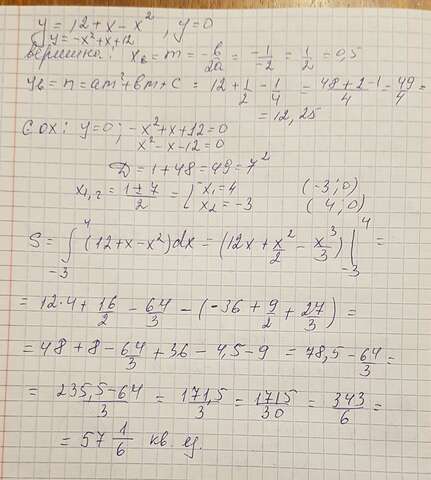 y = 12 + x - x², y = 0
y = -x² + x + 12
вершина: xв = m = -в/2a = -1/-2 = 1/2 = 0,5
yв = n = am² + вm + c = 12 + 1/2 - 1/4 = 48+2-1/4 = 49/4 =
= 12,25
С OX: y = 0; -x² + x + 12 = 0
x² - x - 12 = 0
D = 1 + 48 = 49 = 7²
x1,2 = 1±7/2 = [ x1 = 4 (-3; 0)
x2 = -3 (4; 0)
S = ∫₋₃⁴ (12 + x - x²)dx = (12x + x²/2 - x³/3)|₋₃⁴ =
= 12·4 + 16/2 - 64/3 - (-36 + 9/2 + 27/3) =
= 48 + 8 - 64/3 + 36 - 4,5 - 9 = 78,5 - 64/3 =
= 235,5-64/3 = 171,5/3 = 1715/30 = 343/6 =
= 57 1/6 кв. ед.